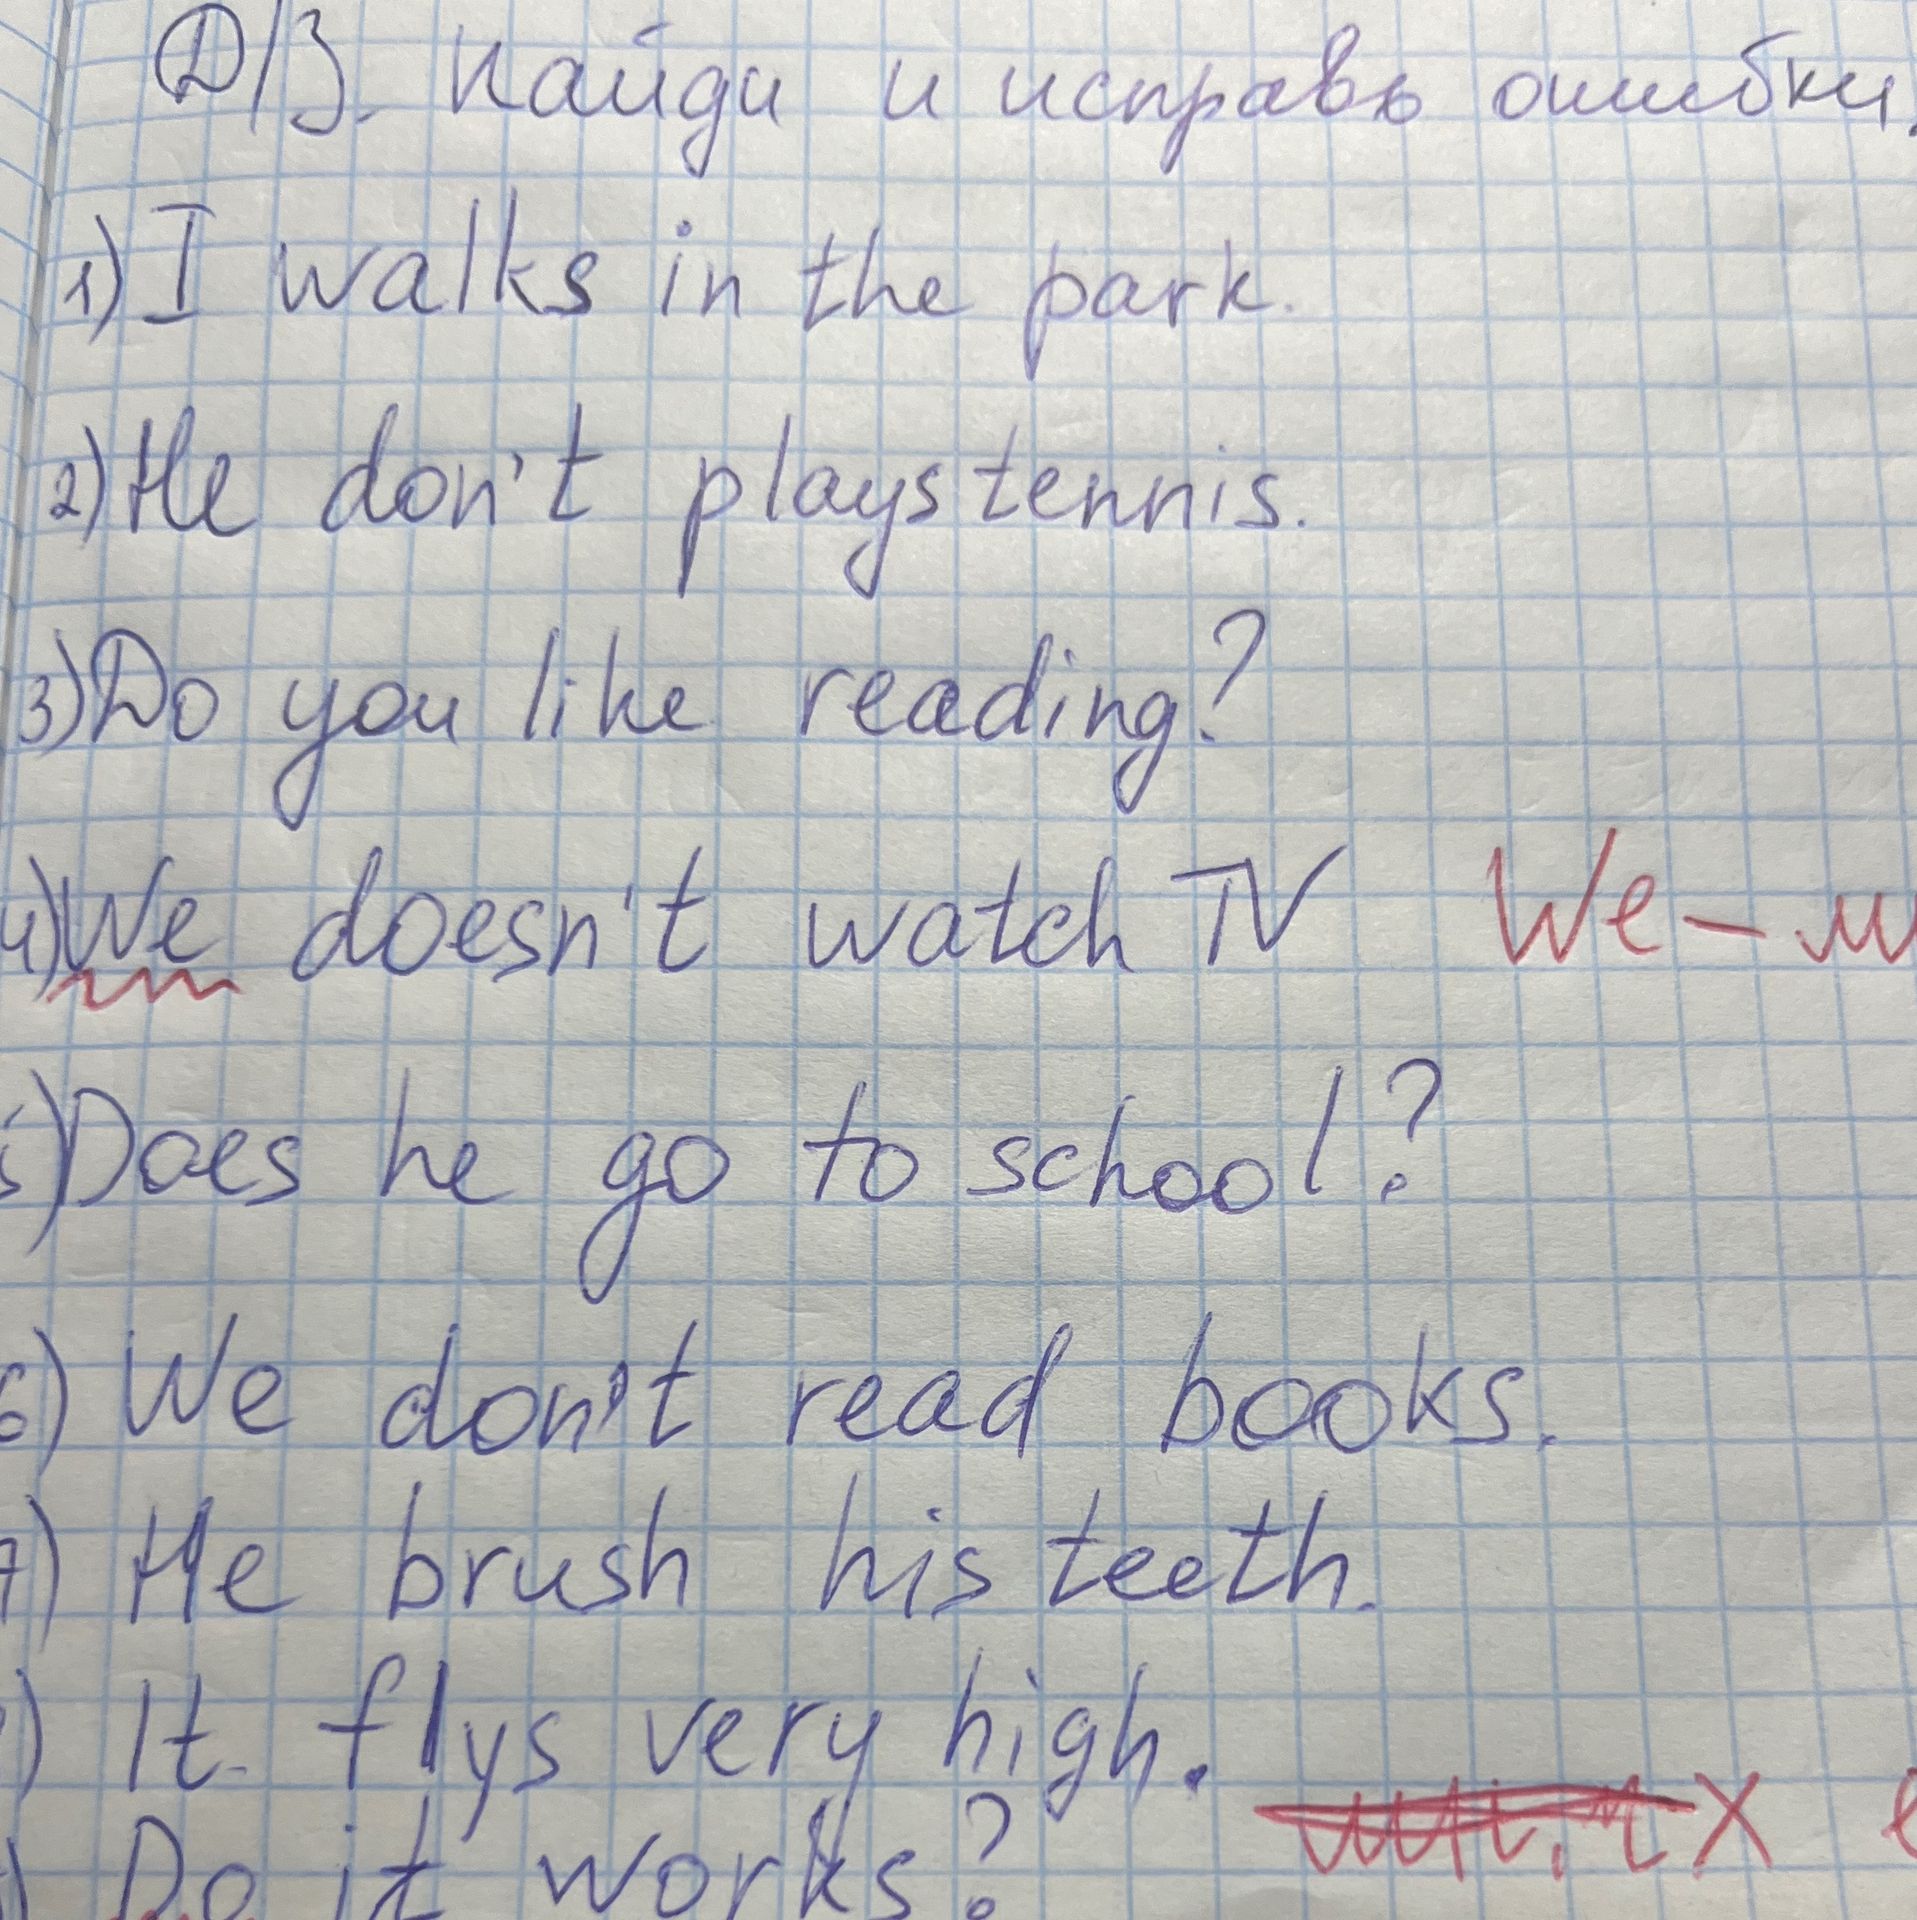 Д/З. Найди и исправь ошибки.
1) I walks in the park.
2) He don't plays tennis.
3) Do you like reading?
4) We doesn't watch TV We –
5) Does he go to school?
6) We don't read books.
7) He brush his teeth.
) It flys very high.
) Do it works?